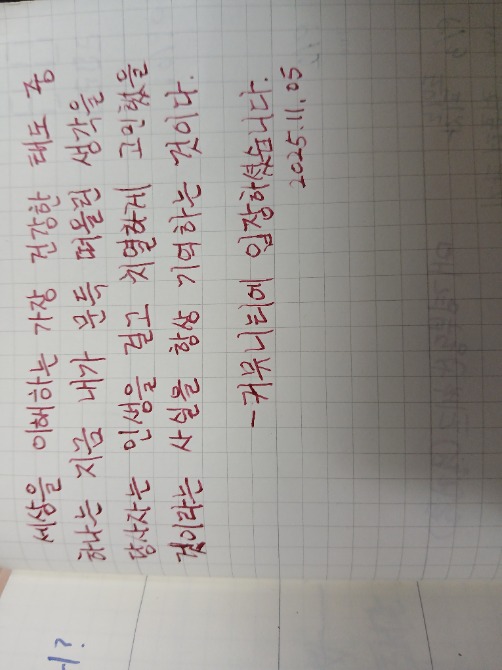 세상을 이해하는 가장 건강한 태도 중
하나는 지금 내가 문득 떠올린 생각을
당사자는 인생을 걸고 치열하게 고민했을
것이라는 사실을 항상 기억하는 것이다.
-커뮤니티에 입장하셨습니다.
2025.11.05